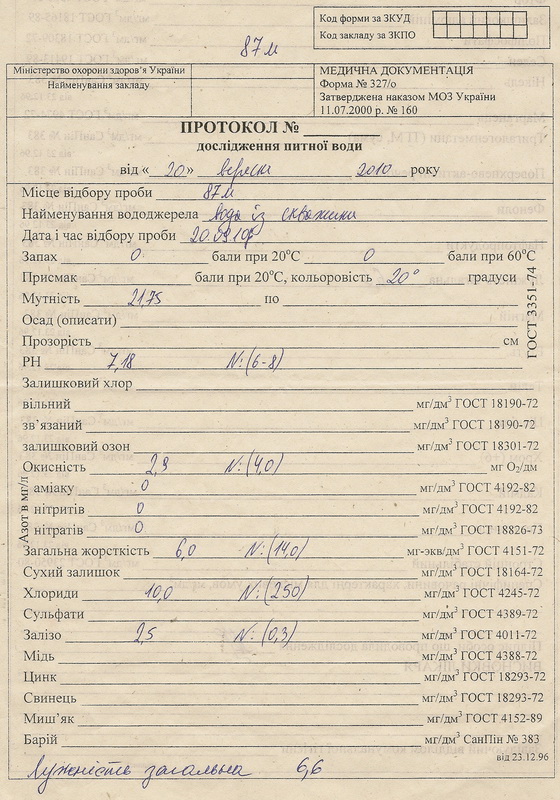 87м
Код форми за ЗКУД
Код закладу за ЗКПО
Міністерство охорони здоров'я України
Найменування закладу
МЕДИЧНА ДОКУМЕНТАЦІЯ
Форма № 327/о
Затверджена наказом МОЗ України
11.07.2000 р. № 160
ПРОТОКОЛ №
дослідження питної води
від « 20 » вересня 2010 року
Місце відбору проби 87м
Найменування вододжерела вода із скважини
Дата і час відбору проби 20.09.10р
Запах 0 бали при 20°С 0 бали при 60°С
Присмак бали при 20°С, кольоровість 20° градуси
Мутність 21,75 по
Осад (описати)
Прозорість см
ГОСТ 3351-74
РН 7,18 N:(6-8)
Залишковий хлор
вільний мг/дм³ ГОСТ 18190-72
зв'язаний мг/дм³ ГОСТ 18190-72
залишковий озон мг/дм³ ГОСТ 18301-72
Окисність 2,9 N:(4,0) мг О₂/дм
Азот в мг/л
аміаку 0 мг/дм³ ГОСТ 4192-82
нітритів 0 мг/дм³ ГОСТ 4192-82
нітратів 0 мг/дм³ ГОСТ 18826-73
Загальна жорсткість 6,0 N:(14,0) мг-экв/дм³ ГОСТ 4151-72
Сухий залишок мг/дм³ ГОСТ 18164-72
Хлориди 10,0 N:(250) мг/дм³ ГОСТ 4245-72
Сульфати мг/дм³ ГОСТ 4389-72
Залізо 2,5 N:(0,3) мг/дм³ ГОСТ 4011-72
Мідь мг/дм³ ГОСТ 4388-72
Цинк мг/дм³ ГОСТ 18293-72
Свинець мг/дм³ ГОСТ 18293-72
Миш'як мг/дм³ ГОСТ 4152-89
Барій мг/дм³ СанПін № 383
від 23.12.96
Лужність загальна 6,6